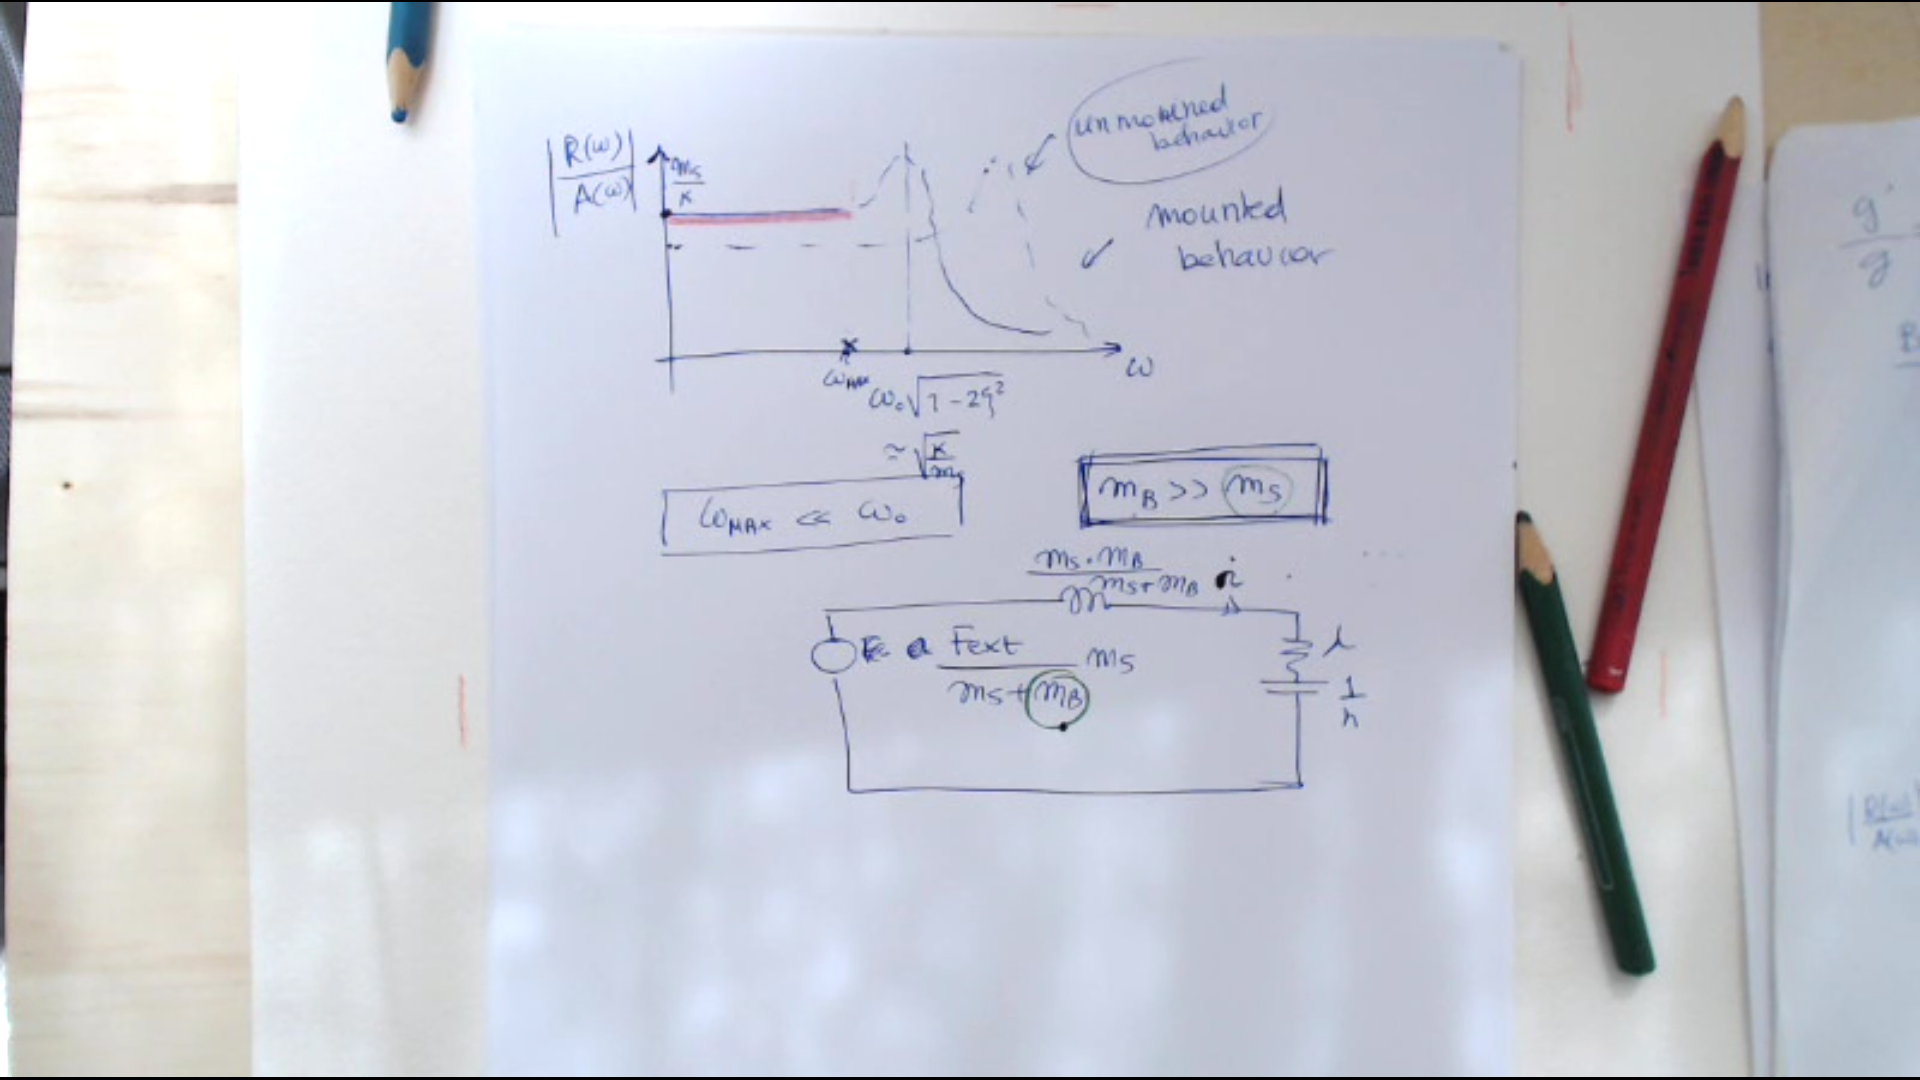 |R(ω)/A(ω)|
ms/k
unmounted behavior
mounted
behavior
ωMAX
ω₀√1-2ξ²
ω
≃ √k/ms
ωMAX << ω₀
mB >> mS
mS·mB/mS+mB
i
Fext/mS+mB mS
λ
1/k
g'/g
B
|R(ω)
A(ω)